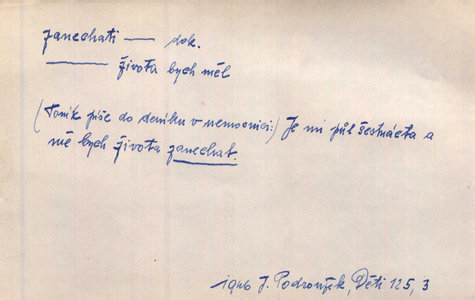 zanechati — dok.
——— života bych měl
(Toník píše do deníku v nemocnici:) Je mi půl šestnácta a
mě bych života zanechat.
1946 J. Podroužek, Děti 125, 3